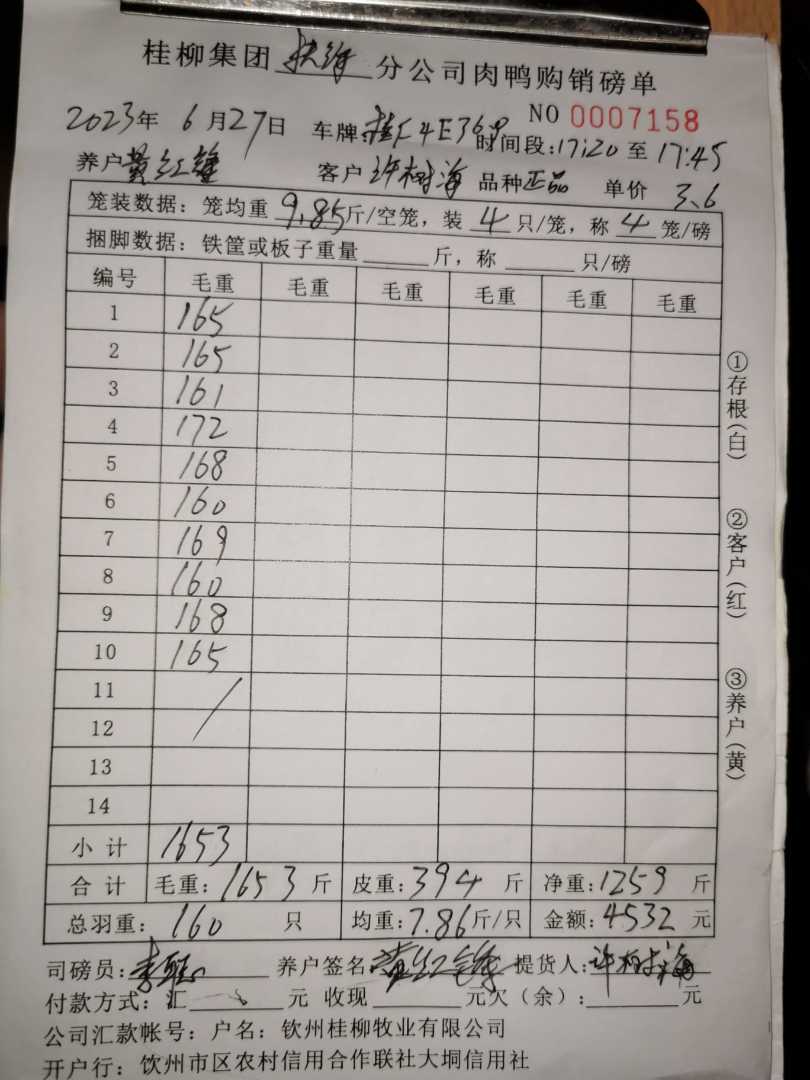 桂柳集团 扶绥 分公司肉鸭购销磅单
NO 0007158
2023年 6月27日 车牌: 时间段:17:20至17:45
养户 黄红锋 客户 许树海 品种 正品 单价 3.6
笼装数据：笼均重 9.85 斤/空笼，装 4 只/笼，称 4 笼/磅
捆脚数据：铁筐或板子重量______斤，称______只/磅
编号 毛重 毛重 毛重 毛重 毛重 毛重
1 165
2 165
3 161
4 172
5 168
6 160
7 169
8 160
9 168
10 165
11 /
12
13
14
小计 1653
合计 毛重：1653斤 皮重：394斤 净重：1259斤
总羽重：160只 均重：7.86斤/只 金额：4532元
司磅员： 养户签名：黄红锋 提货人：许树海
付款方式：汇______元 收现______元欠（余）：______元
公司汇款帐号：户名：钦州桂柳牧业有限公司
开户行：钦州市区农村信用合作联社大垌信用社
①存根(白)
②客户(红)
③养户(黄)